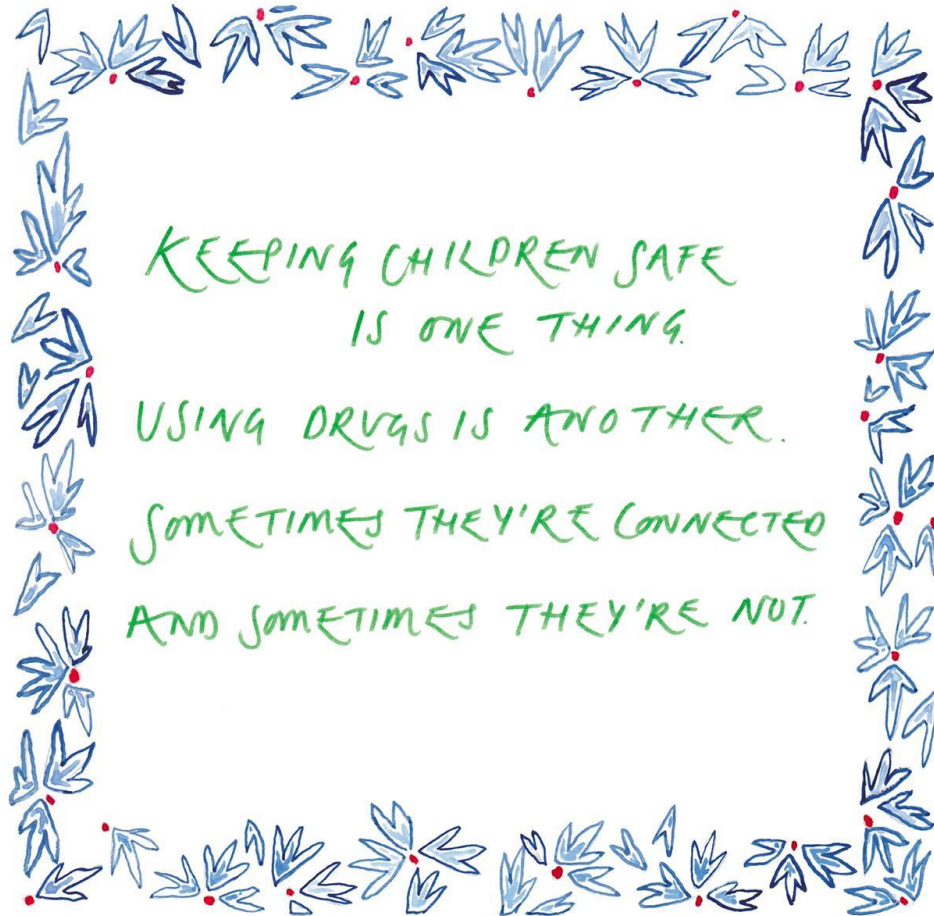 KEEPING CHILDREN SAFE
IS ONE THING.
USING DRUGS IS ANOTHER.
SOMETIMES THEY'RE CONNECTED
AND SOMETIMES THEY'RE NOT.